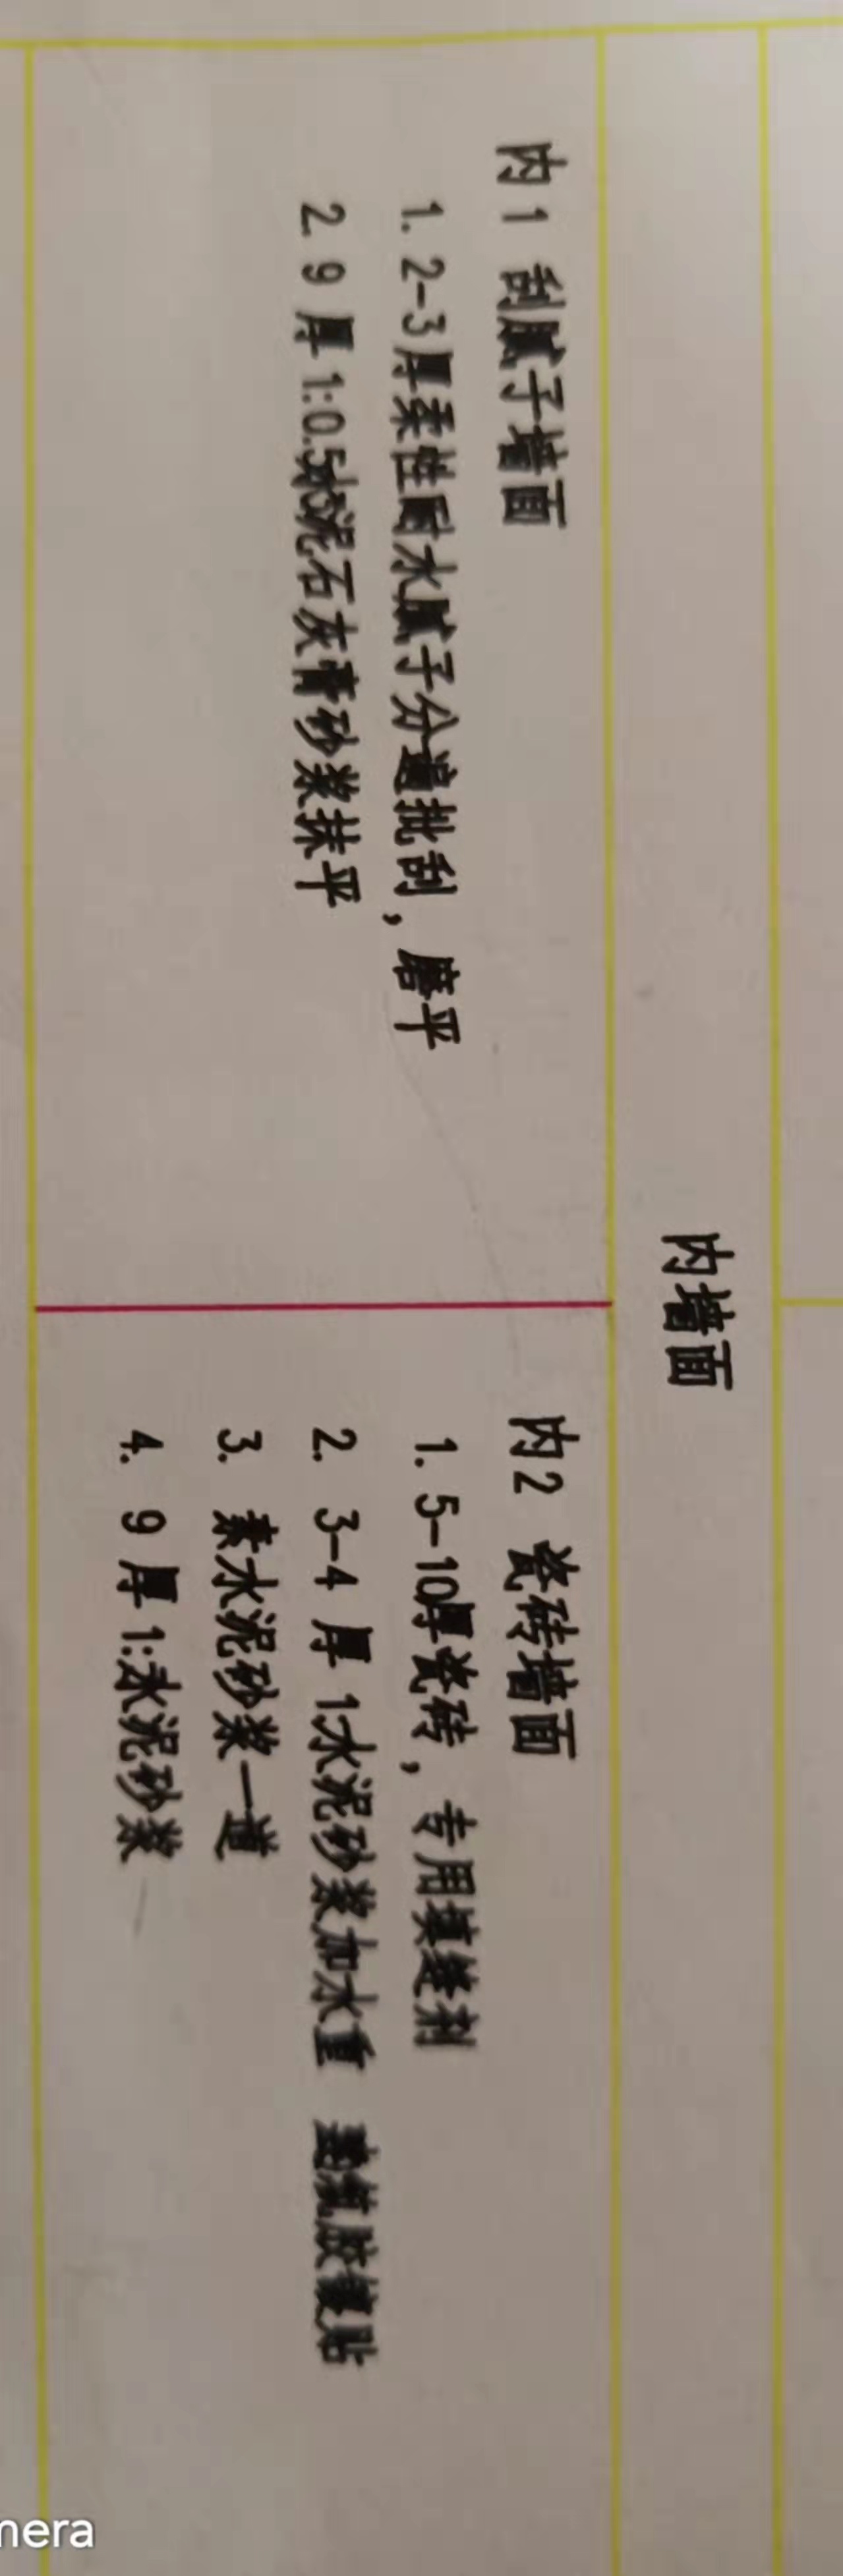 内墙面
内1 刮腻子墙面
1. 2-3厚柔性耐水腻子分遍批刮，磨平
2. 9 厚 1:0.5水泥石灰膏砂浆抹平
内2 瓷砖墙面
1. 5-10厚瓷砖，专用填缝剂
2. 3-4 厚 1:水泥砂浆加水重 建筑胶镶贴
3. 素水泥砂浆一道
4. 9 厚 1:水泥砂浆
mera